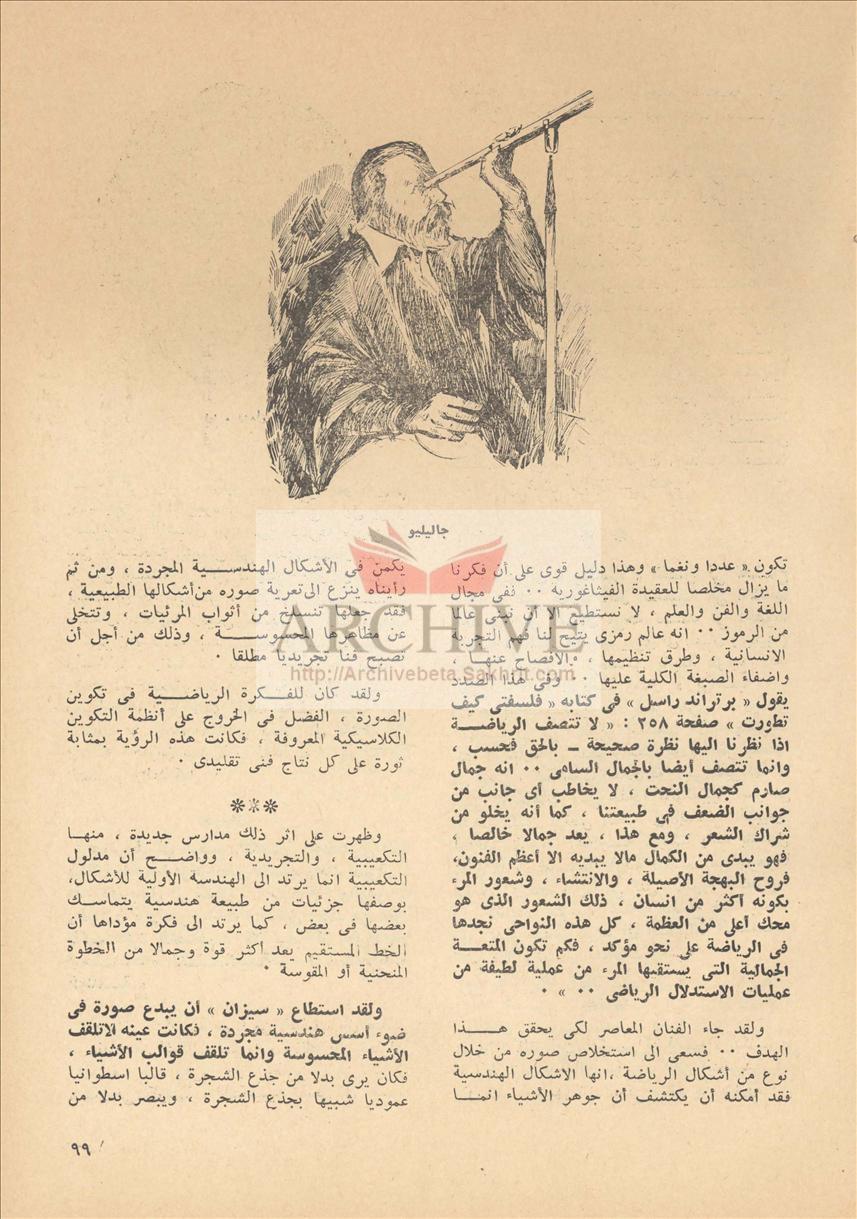 جاليليو
تكون « عددا ونغما » وهذا دليل قوى على أن فكرنا
ما يزال مخلصا للعقيدة الفيثاغورية ٠٠ ففى مجال
اللغة والفن والعلم ، لا نستطيع الا أن نبنى عالما
من الرموز ٠٠ انه عالم رمزى يتيح لنا فهم التجربة
الانسانية ، وطرق تنظيمها ، والافصاح عنها ،
واضفاء الصبغة الكلية عليها ٠٠ وفى هذا الصدد
يقول « برتراند راسل » فى كتابه « فلسفتى كيف
تطورت » صفحة ٢٥٨ : « لا تتصف الرياضة
اذا نظرنا اليها نظرة صحيحة ـ بالحق فحسب ،
وانما تتصف أيضا بالجمال السامى ٠٠ انه جمال
صارم كجمال النحت ، لا يخاطب أى جانب من
جوانب الضعف فى طبيعتنا ، كما أنه يخلو من
شراك الشعر ، ومع هذا ، يعد جمالا خالصا ،
فهو يبدى من الكمال مالا يبديه الا أعظم الفنون،
فروح البهجة الأصيلة ، والانتشاء ، وشعور المرء
بكونه أكثر من انسان ، ذلك الشعور الذى هو
محك أعلى من العظمة ، كل هذه النواحى نجدها
فى الرياضة على نحو مؤكد ، فكم تكون المتعة
الجمالية التى يستقبها المرء من عملية لطيفة من
عمليات الاستدلال الرياضى ٠٠ » ٠
ولقد جاء الفنان المعاصر لكى يحقق هذا
الهدف ٠٠ فسعى الى استخلاص صوره من خلال
نوع من أشكال الرياضة ،انها الاشكال الهندسية
فقد أمكنه أن يكتشف أن جوهر الأشياء انما
يكمن فى الأشكال الهندسية المجردة ، ومن ثم
رأيناه ينزع الى تعرية صوره من أشكالها الطبيعية ،
فقد جعلها تنسلخ من أثواب المرئيات ، وتتخلى
عن مظاهرها المحسوسة ، وذلك من أجل أن
تصبح فنا تجريديا مطلقا ٠
ولقد كان للفكرة الرياضية فى تكوين
الصورة ، الفضل فى الخروج على أنظمة التكوين
الكلاسيكية المعروفة ، فكانت هذه الرؤية بمثابة
ثورة على كل نتاج فنى تقليدى ٠
***
وظهرت على اثر ذلك مدارس جديدة ، منها
التكعيبية ، والتجريدية ، وواضح أن مدلول
التكعيبية انما يرتد الى الهندسة الأولية للأشكال،
بوصفها جزئيات من طبيعة هندسية يتماسك
بعضها فى بعض ، كما يرتد الى فكرة مؤداها أن
الخط المستقيم يعد أكثر قوة وجمالا من الخطوة
المنحنية أو المقوسة ٠
ولقد استطاع « سيزان » أن يبدع صورة فى
ضوء أسس هندسية مجردة ، فكانت عينه لاتلقف
الأشياء المحسوسة وانما تلقف قوالب الأشياء ،
فكان يرى بدلا من جذع الشجرة ، قالبا اسطوانيا
عموديا شبيها بجذع الشجرة ، ويبصر بدلا من
٩٩
ARCHIVE
http://Archivebeta.Sakhrit.com